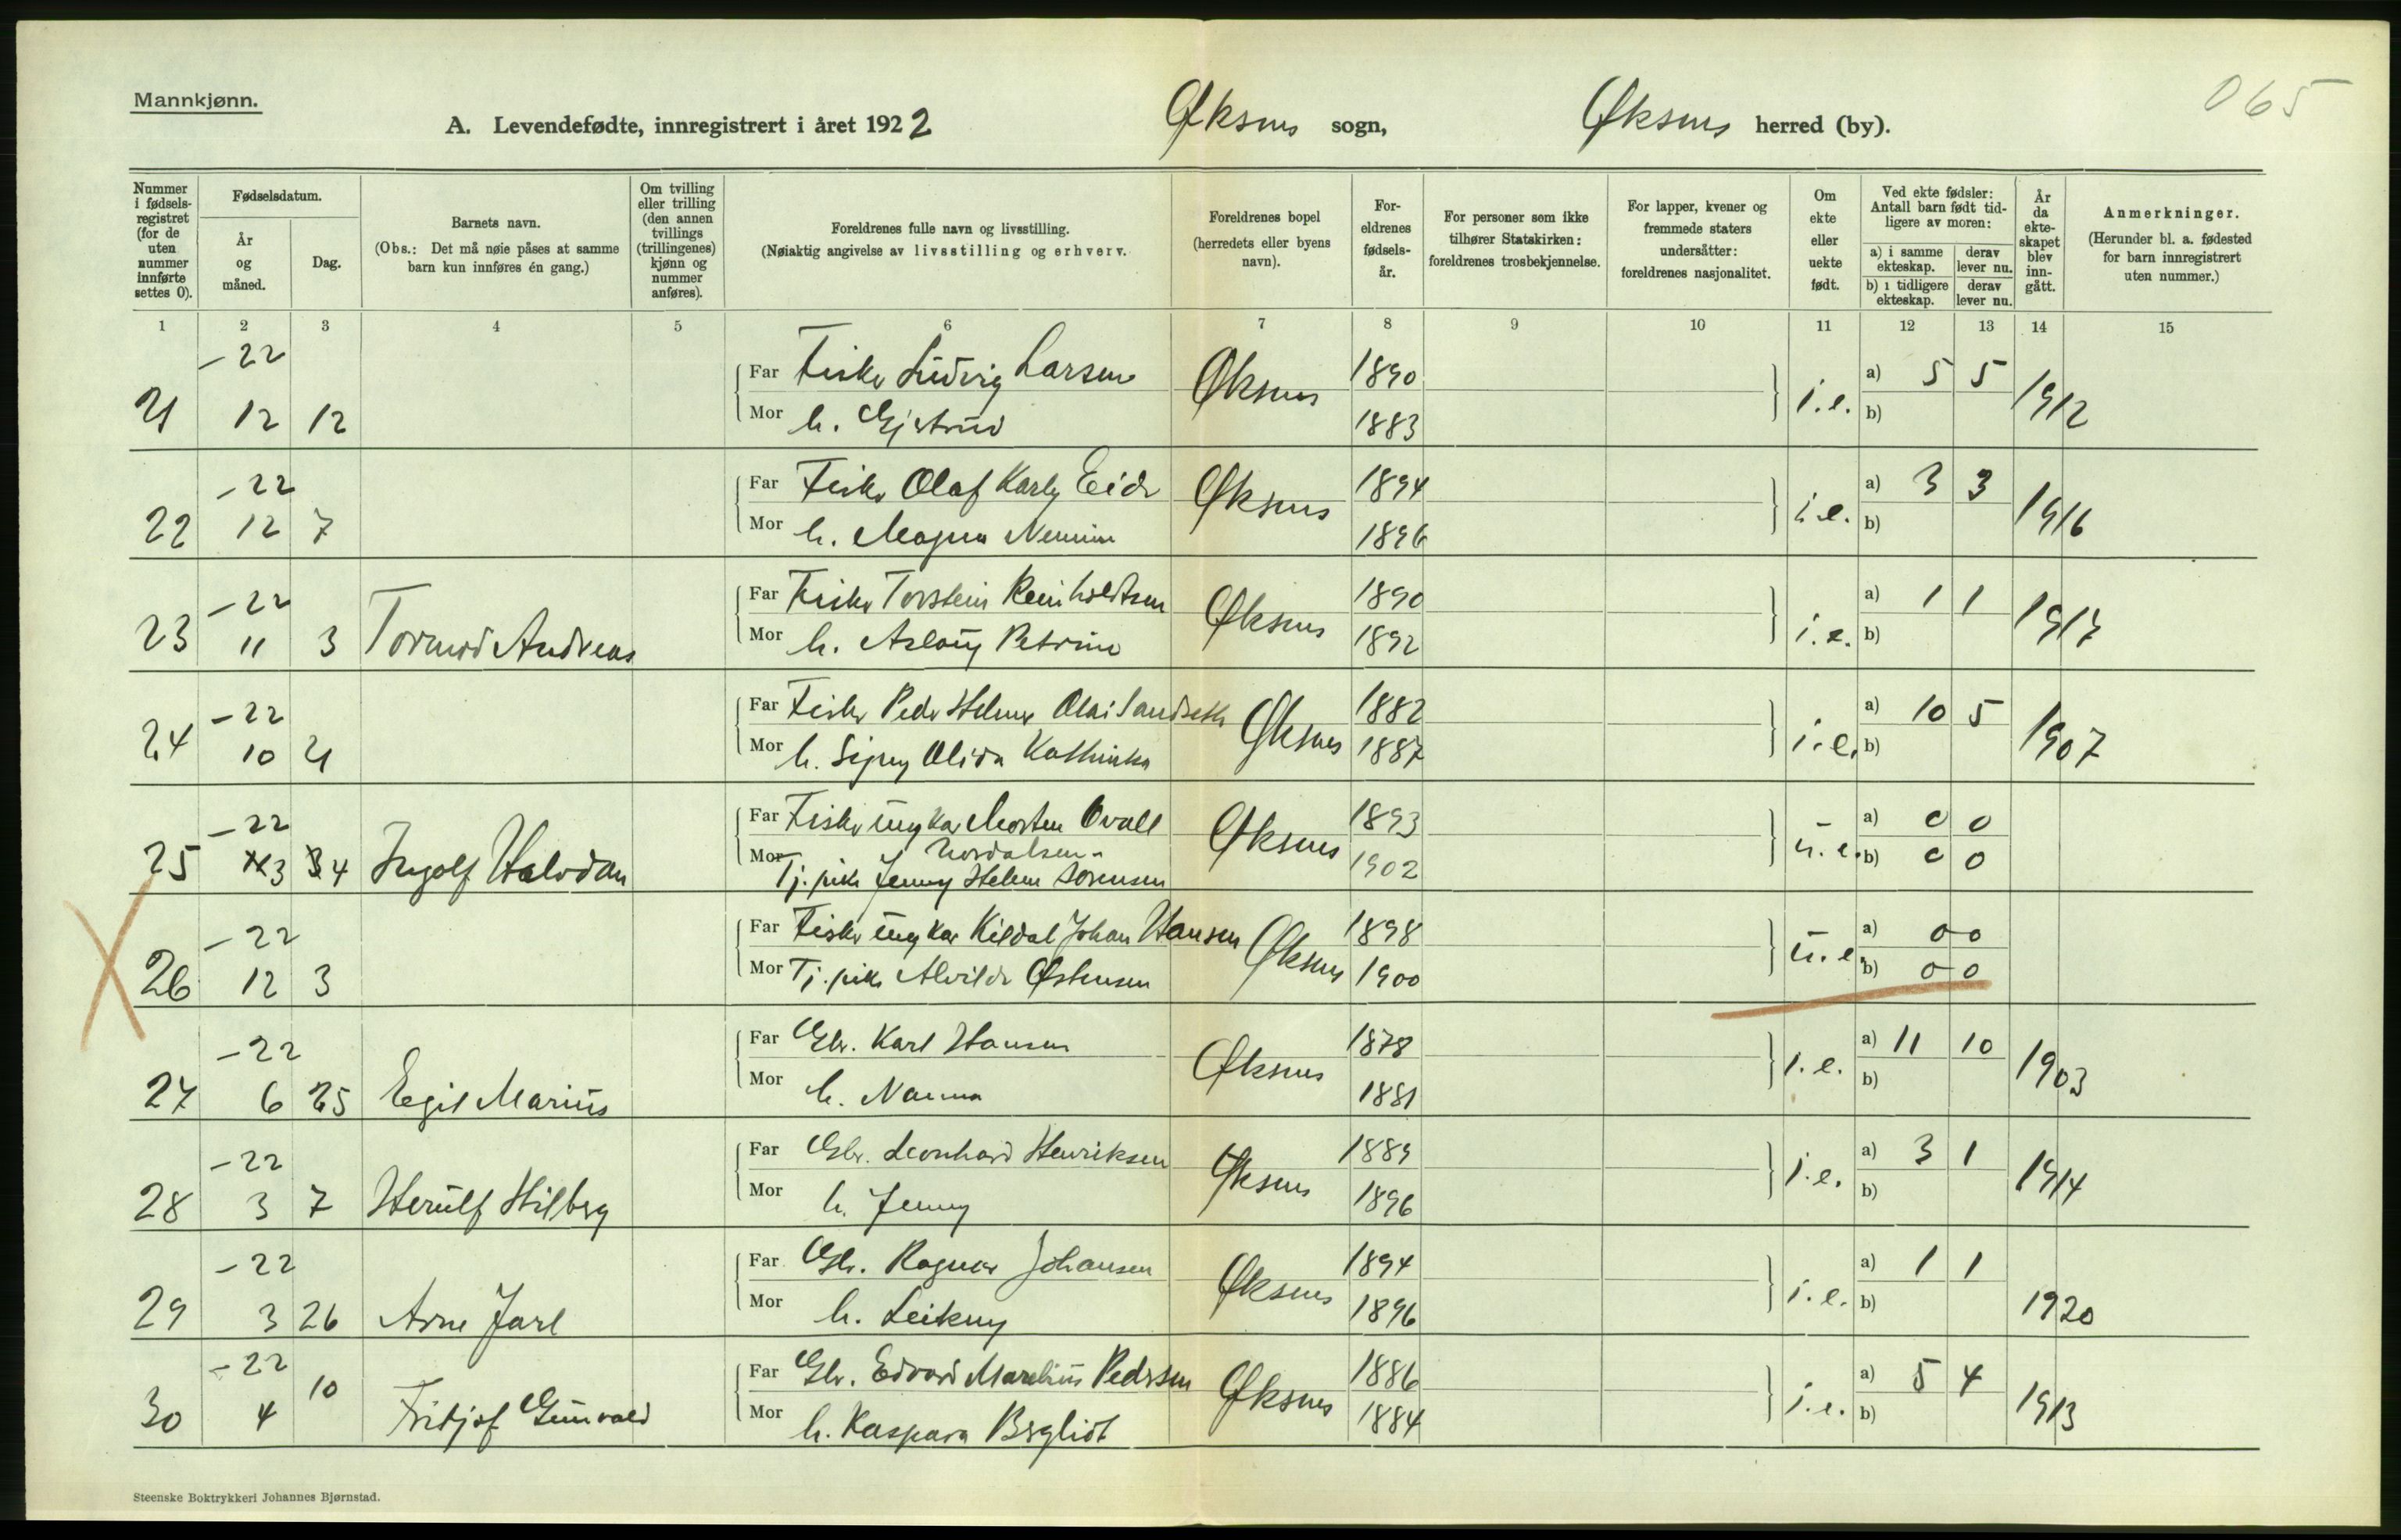 Mannkjønn.
065
A. Levendefødte, innregistrert i året 1922 Øksnes sogn, Øksnes herred (by).
Nummer i fødselsregistret (for de uten nummer innførte settes 0).
Fødselsdatum.
År og måned.
Dag.
Barnets navn.
(Obs.: Det må nøie påses at samme barn kun innføres én gang.)
Om tvilling eller trilling (den annen tvillings (trillingenes) kjønn og nummer anføres).
Foreldrenes fulle navn og livsstilling.
(Nøiaktig angivelse av livsstilling og erhverv.
Foreldrenes bopel (herredets eller byens navn).
Foreldrenes fødselsår.
For personer som ikke tilhører Statskirken: foreldrenes trosbekjennelse.
For lapper, kvener og fremmede staters undersåtter: foreldrenes nasjonalitet.
Om ekte eller uekte født.
Ved ekte fødsler: Antall barn født tidligere av moren:
a) i samme ekteskap.
derav lever nu.
b) i tidligere ekteskap.
derav lever nu.
År da ekteskapet blev inngått.
Anmerkninger.
(Herunder bl. a. fødested for barn innregistrert uten nummer.)
1 2 3 4 5 6 7 8 9 10 11 12 13 14 15
-22 Far Fisker Ludvig Larsen Øksnes 1890 a) 5 5
21 12 12 Mor h. Gjertrud 1883 i.e. b) 1912
-22 Far Fisker Olaf Karly Eide Øksnes 1894 a) 3 3
22 12 7 Mor h. Magna 1896 i.e. b) 1916
-22 Far Fisker Torstein Reinholdtsen Øksnes 1890 a) 1 1
23 11 3 Tormod Andreas Mor h. Aslaug Petrine 1892 i.e. b) 1917
-22 Far Fisker Peder Helmer Olai Sandseth Øksnes 1882 a) 10 5
24 10 21 Mor h. Signy Olida Kathinka 1887 i.e. b) 1907
-22 Far Fisker ungkar Morten Ovall Øksnes 1893 a) 0 0
Nordalsen
25 3 4 Ingolf Halvdan Mor Tj. pike Jenny Helene Sørensen 1902 u.e. b) 0 0
-22 Far Fisker ungkar Kildal Johan Hansen Øksnes 1898 a) 0 0
26 12 3 Mor Tj. pike Alvilde Østensen 1900 u.e. b) 0 0
-22 Far Gbr. Karl Hansen Øksnes 1878 a) 11 10
27 6 25 Egil Marius Mor h. Nanna 1881 i.e. b) 1903
-22 Far Gbr. Leonhard Henriksen Øksnes 1889 a) 3 1
28 3 7 Herulf Hilberg Mor h. Jenny 1896 i.e. b) 1914
-22 Far Gbr. Ragnar Johansen Øksnes 1894 a) 1 1
29 3 26 Arne Jarl Mor h. Leikny 1896 i.e. b) 1920
-22 Far Gbr. Edvard Marelius Pedersen Øksnes 1886 a) 5 4
30 4 10 Fritjof Gunvald Mor h. Kaspara Bergliot 1884 i.e. b) 1913
Steenske Boktrykkeri Johannes Bjørnstad.